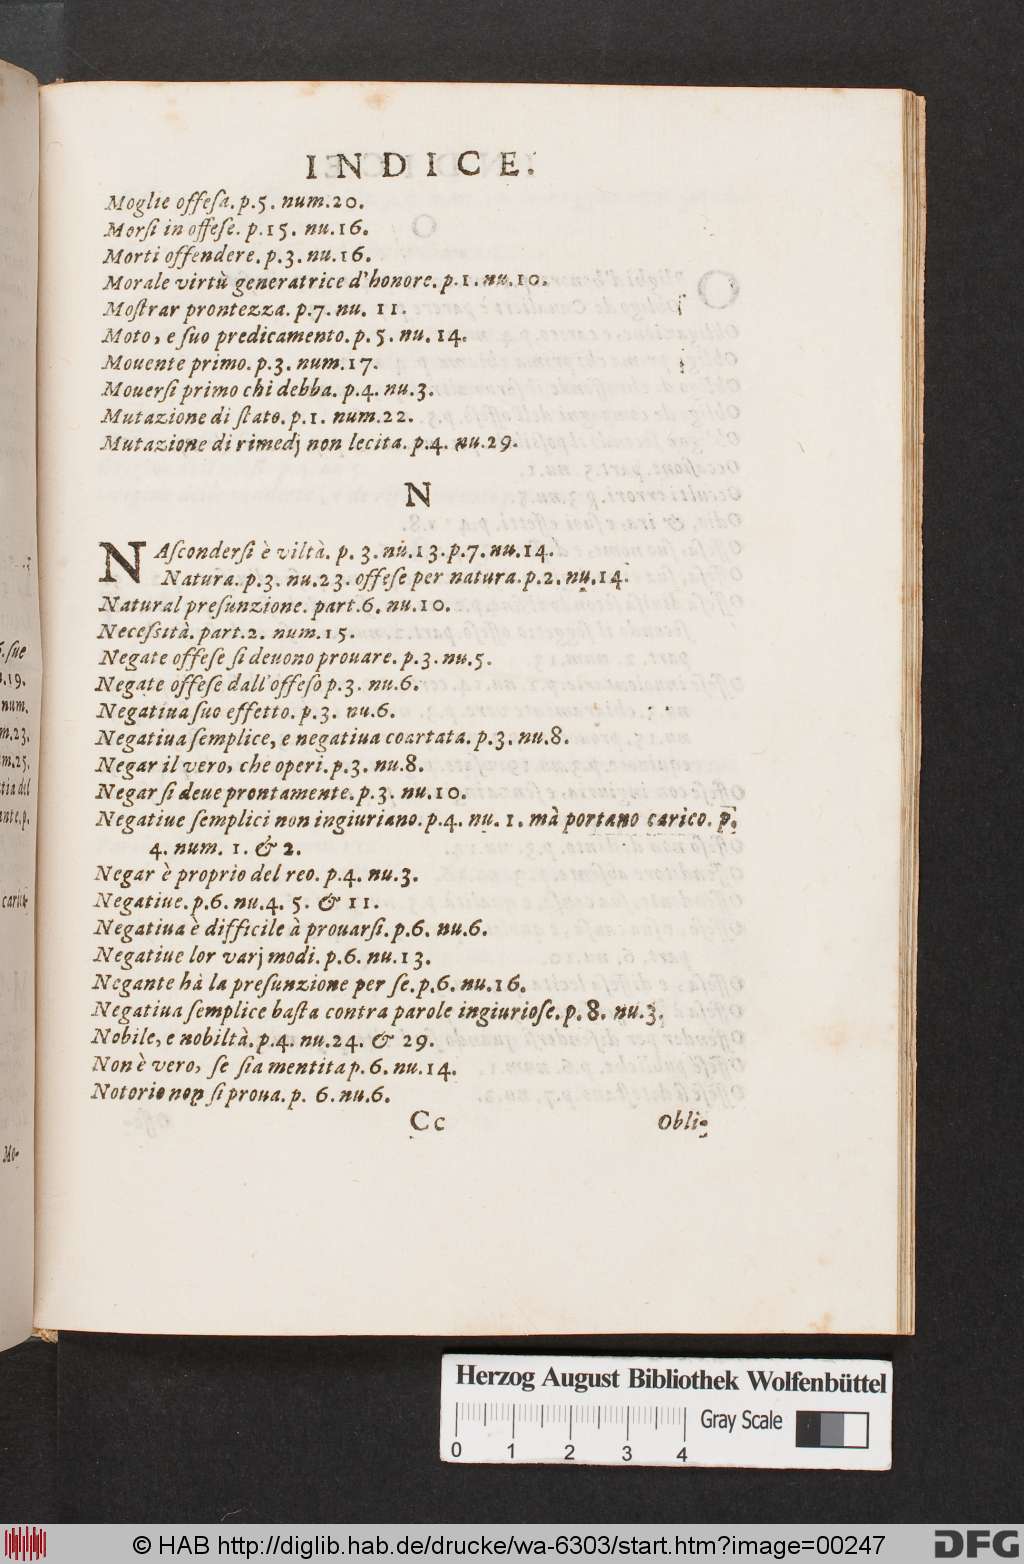 INDICE.
Moglie offeſa. p.5. num.20.
Morſi in offeſe. p.15. nu.16.
Morti offendere. p.3. nu.16.
Morale virtù generatrice d'honore. p.1. nu.10.
Moſtrar prontezza. p.7. nu. 11.
Moto, e ſuo predicamento. p.5. nu.14.
Mouente primo. p.3. num.17.
Mouerſi primo chi debba. p.4. nu.3.
Mutazione di ſtato. p.1. num.22.
Mutazione di rimedj non lecita. p.4. nu.29.
N
NAſconderſi è viltà. p. 3. nu.13. p.7. nu.14.
Natura. p.3. nu.23. offeſe per natura. p.2. nu.14.
Natural preſunzione. part.6. nu.10.
Neceſsità. part.2. num.15.
Negate offeſe ſi deuono prouare. p.3. nu.5.
Negate offeſe dall'offeſo p.3. nu.6.
Negatiua ſuo effetto. p.3. nu.6.
Negatiua ſemplice, e negatiua coartata. p.3. nu.8.
Negar il vero, che operi. p.3. nu.8.
Negar ſi deue prontamente. p.3. nu.10.
Negatiue ſemplici non ingiuriano. p.4. nu. 1. mà portano carico. p.
4. num. 1. & 2.
Negar è proprio del reo. p.4. nu.3.
Negatiue. p.6. nu.4. 5. & 11.
Negatiua è difficile à prouarſi. p.6. nu.6.
Negatiue lor varj modi. p.6. nu.13.
Negante hà la preſunzione per ſe. p.6. nu.16.
Negatiua ſemplice baſta contra parole ingiurioſe. p.8. nu.3.
Nobile, e nobiltà. p.4. nu.24. & 29.
Non è vero, ſe ſia mentita p.6. nu.14.
Notorio non ſi proua. p. 6. nu.6.
Cc Obli-
ſue
.19.
num.
m.23.
m.25.
tia del
ante. p.
Mo-
Herzog August Bibliothek Wolfenbüttel
Gray Scale
0 1 2 3 4
© HAB http://diglib.hab.de/drucke/wa-6303/start.htm?image=00247
DFG